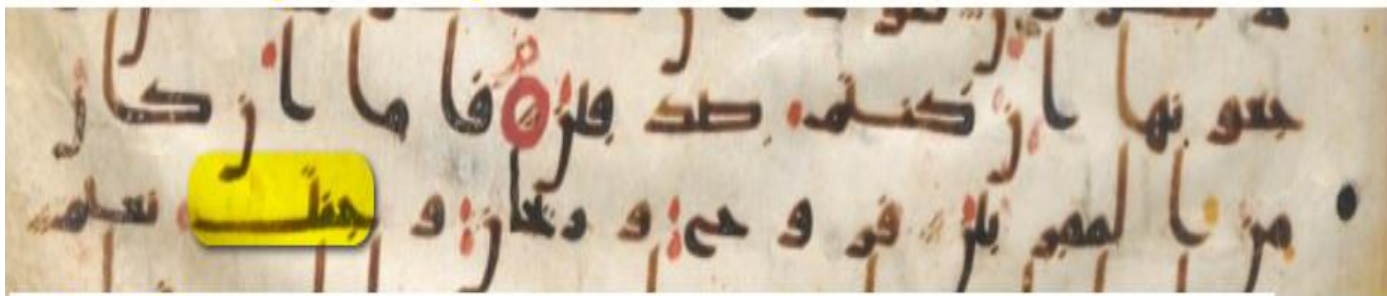 جعونها ان كنتم صدقين فاما ان كان
من المقربين فروح وريحان وجنت نعيم